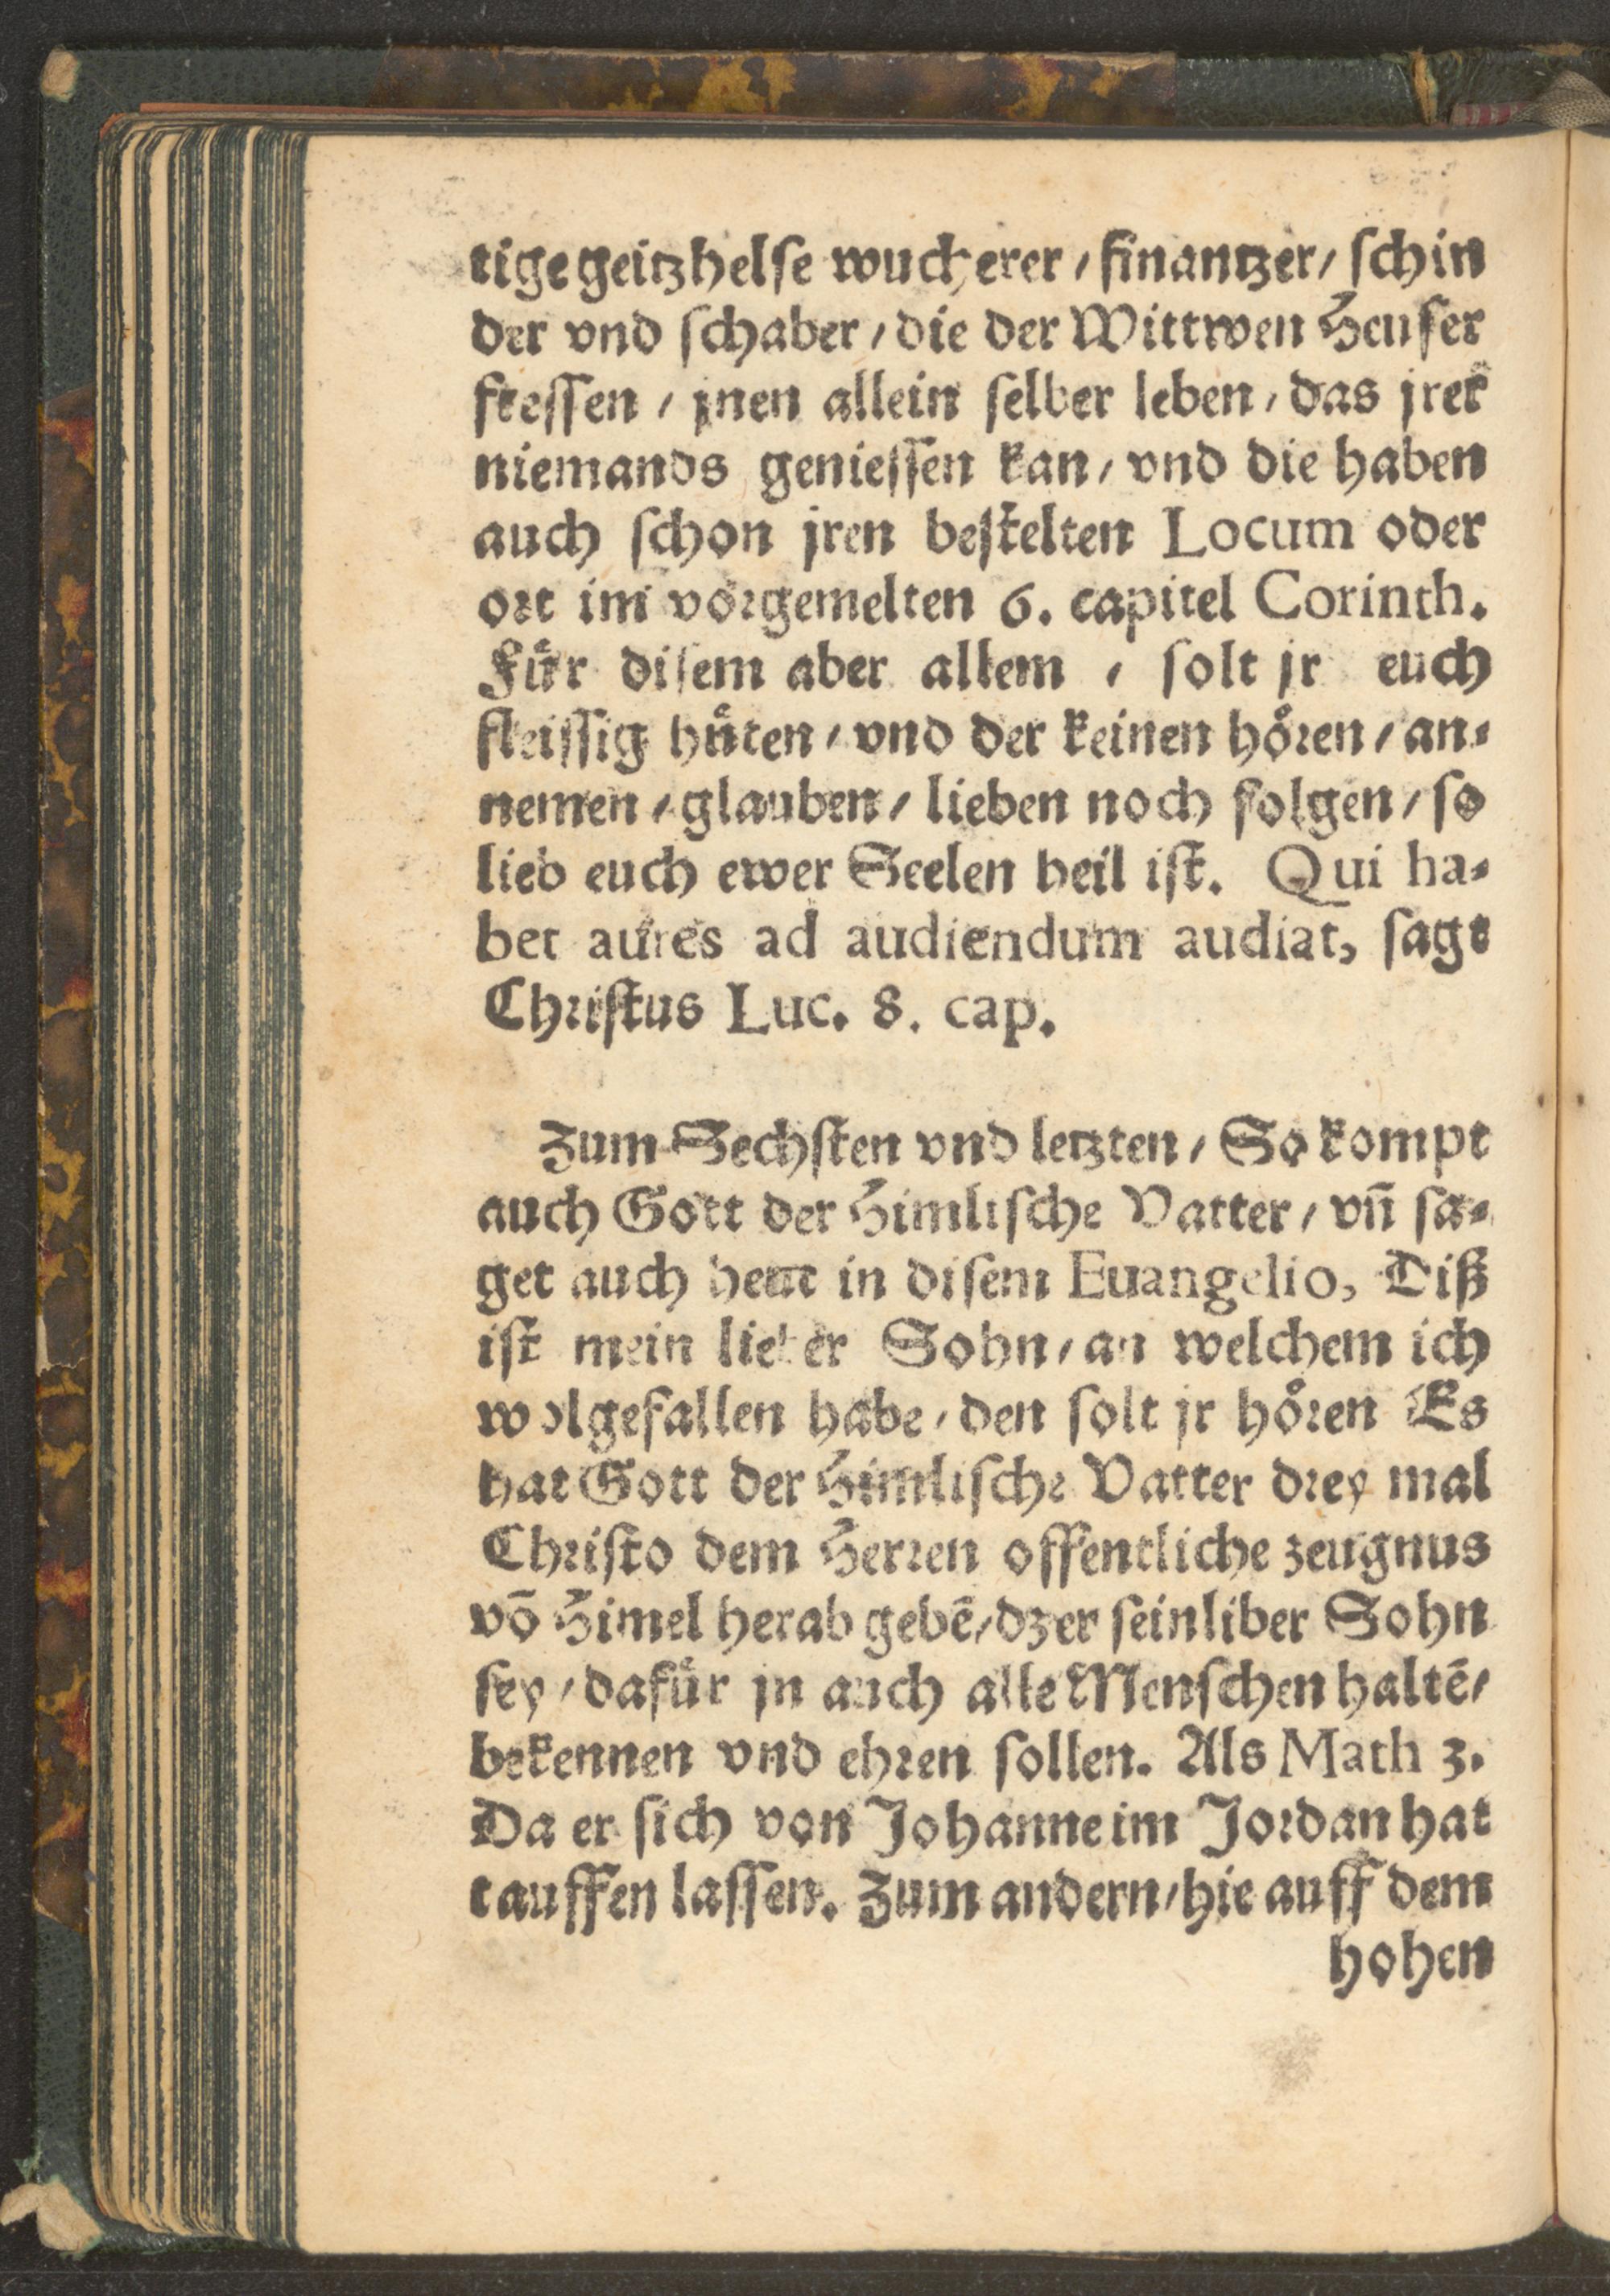 tige geitzhelse wucherer / finantzer / schin
der vnd schaber / die der Wittwen Heuser
fressen / jnen allein selber leben / das jrer
niemands geniessen kan / vnd die haben
auch schon jren bestelten Locum oder
ort im vorgemelten 6. capitel Corinth.
Fuͤr disem aber allem / solt jr euch
fleissig huͤten / vnd der keinen hoͤren / an-
nemen / glauben / lieben noch folgen / so
lieb euch ewer Seelen heil ist. Qui ha-
bet aures ad audiendum audiat, sagt
Christus Luc. 8. cap.
Zum Sechsten vnd letzten / So kompt
auch Gott der Himlische Vatter / vñ sa-
get auch heut in disem Euangelio, Diß
ist mein lieber Sohn / an welchem ich
wolgefallen habe / den solt jr hoͤren Es
hat Gott der Himlische Vatter drey mal
Christo dem Herren offentliche zeugnus
võ Himel herab gebẽ / dz er sein liber Sohn
sey / dafuͤr jn auch alle Menschen haltẽ /
bekennen vnd ehren sollen. Als Math 3.
Da er sich von Johanne im Jordan hat
tauffen lassen. Zum andern / hie auff dem
hohen